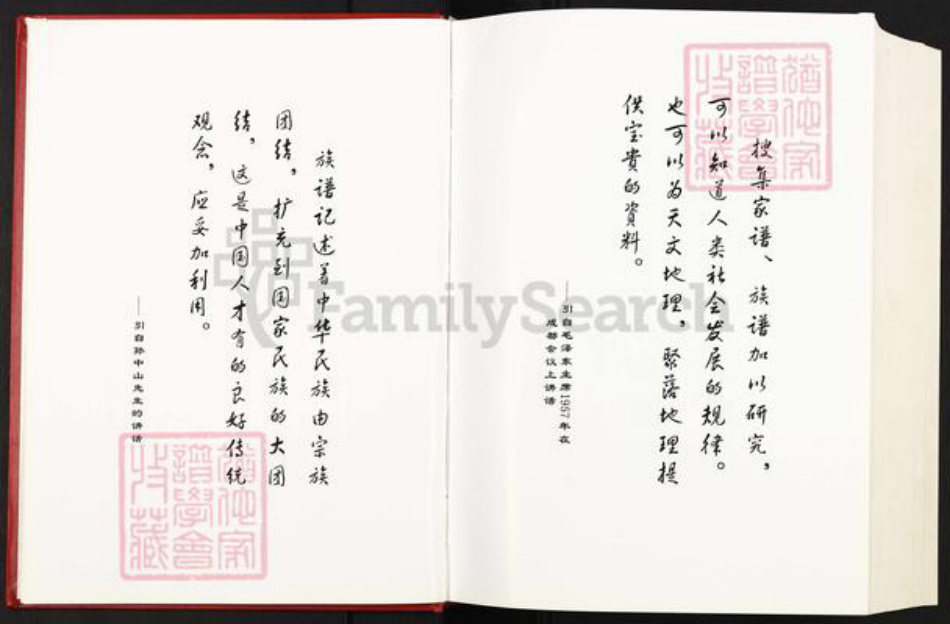 搜集家谱、族谱加以研究，
可以知道人类社会发展的规律。
也可以为天文地理，聚落地理提
供宝贵的资料。
——引自毛泽东主席1957年在
成都会议上讲话
族谱记述着中华民族由宗族
团结，扩充到国家民族的大团
结，这是中国人才有的良好传统
观念，应妥加利用。
——引自孙中山先生的讲话
猶他家
譜學會
收藏
猶他家
譜學會
收藏
FamilySearch